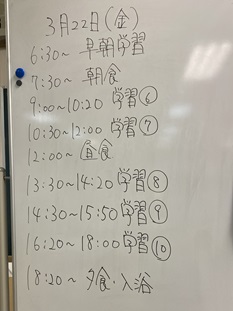 3月22日(金)
6:30~ 早朝学習
7:30~ 朝食
9:00~10:20 学習⑥
10:30~12:00 学習⑦
12:00~ 昼食
13:30~14:20 学習⑧
14:30~15:50 学習⑨
16:20~18:00 学習⑩
18:20~ 夕食・入浴